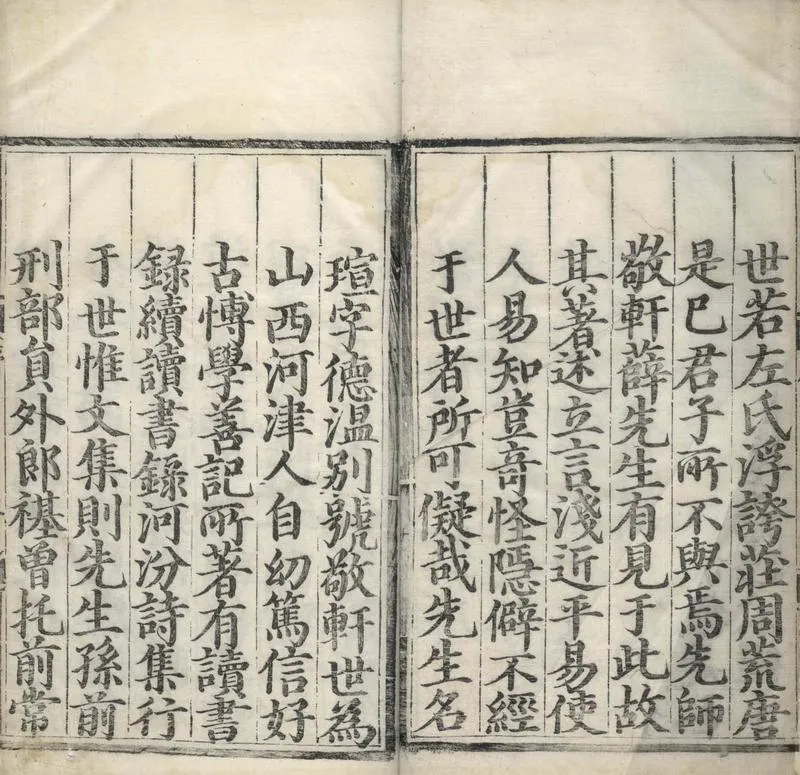 世若左氏浮誇莊周荒唐
是已君子所不與焉先師
敬軒薛先生有見于此故
其著述立言淺近平易使
人易知豈竒怪隱僻不經
于世者所可儗哉先生名
瑄字德溫別號敬軒世為
山西河津人自幼篤信好
古愽學善記所著有讀書
録續讀書録河汾詩集行
于世惟文集則先生孫前
刑部員外郎禥曾托前常